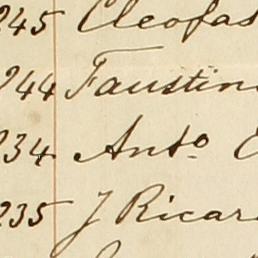 245 Cleofas
244 Faustin
234 Anto
235 J Ricar